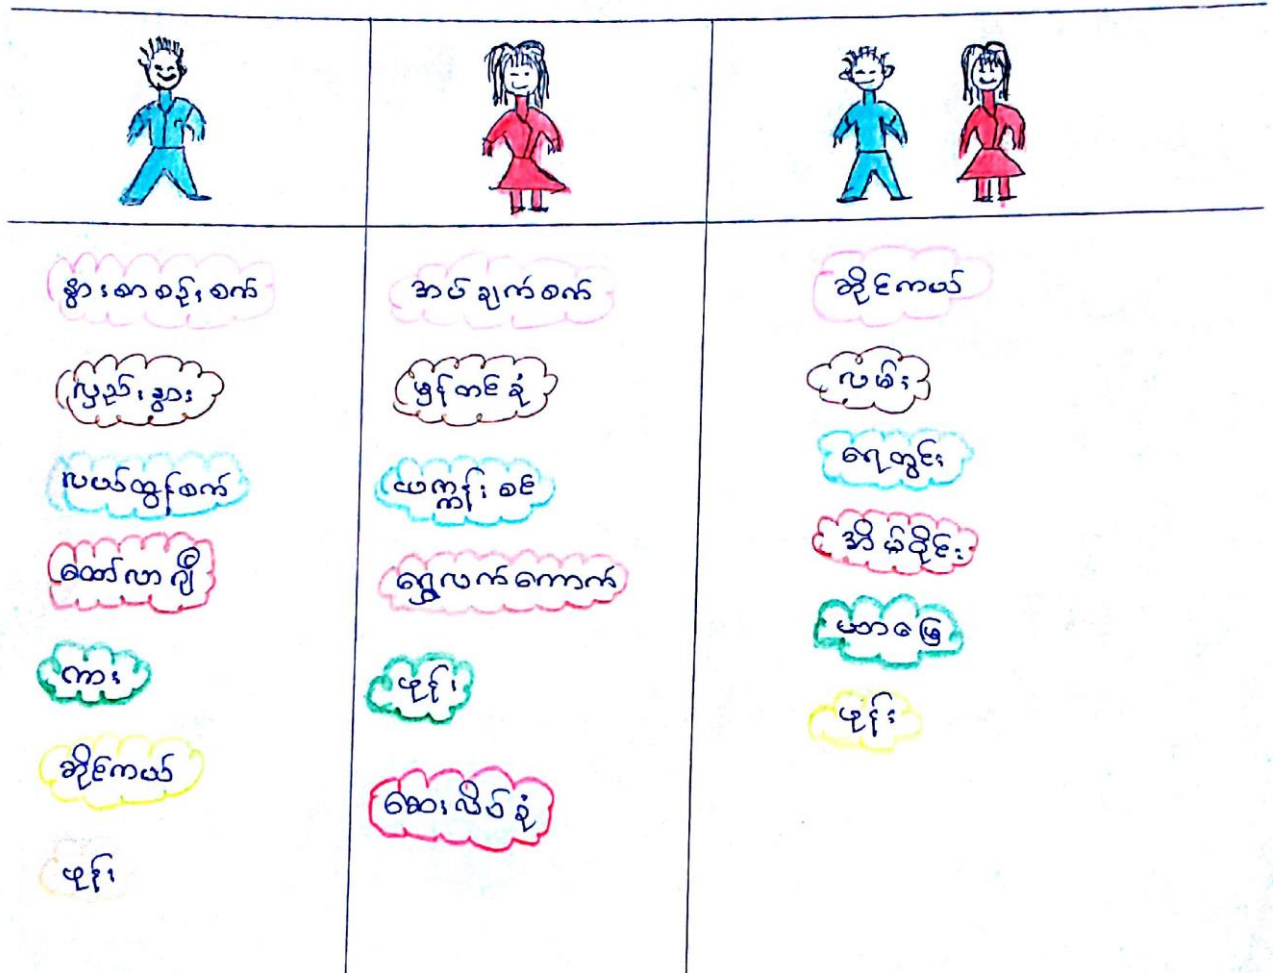 နွားစာစဉ်းစက်
လှည်းနွား
လယ်ထွန်စက်
ထော်လာဂျီ
ကား
ဆိုင်ကယ်
ဖုန်း
အပ်ချုက်စက်
မှန်တင်ခုံ
ယက္ကန်းစင်
ရွှေလက်ကောက်
ဖုန်း
ဆေးလိပ်ခုံ
ဆိုင်ကယ်
လမ်း
ရေတွင်း
အိမ်ဝိုင်း
ယာမြေ
ဖုန်း